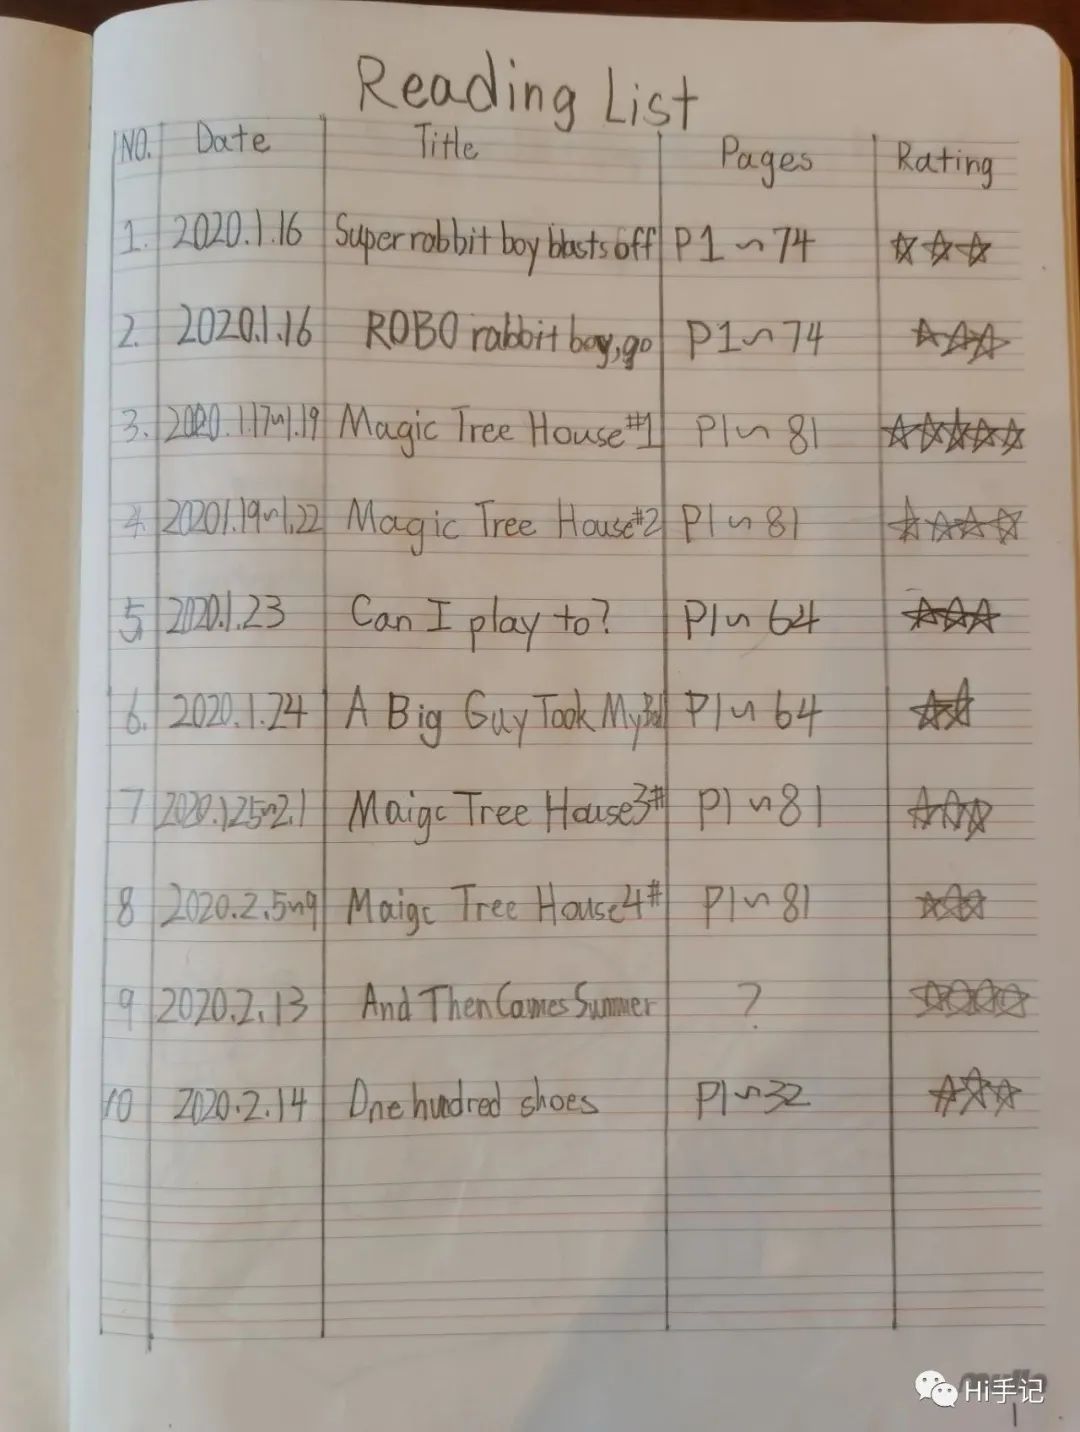 Reading List
NO. Date Title Pages Rating
1. 2020.1.16 Super rabbit boy blasts off P1~74 ☆☆☆
2. 2020.1.16 ROBO rabbit boy,go P1~74 ☆☆☆
3. 2020.1.17~1.19 Magic Tree House#1 P1~81 ☆☆☆☆☆
4. 20201.19~1.22 Magic Tree House#2 P1~81 ☆☆☆☆
5. 2020.1.23 Can I play to? P1~64 ☆☆☆
6. 2020.1.24 A Big Guy Took My Ball P1~64 ☆☆
7 2020.1.25~2.1 Maigc Tree House3# P1~81 ☆☆☆
8 2020.2.5~9 Maigc Tree House4# P1~81 ☆☆☆
9 2020.2.13 And Then Comes Summer ? ☆☆☆☆
10 2020.2.14 One hundred shoes P1~32 ☆☆☆
Hi手记
1